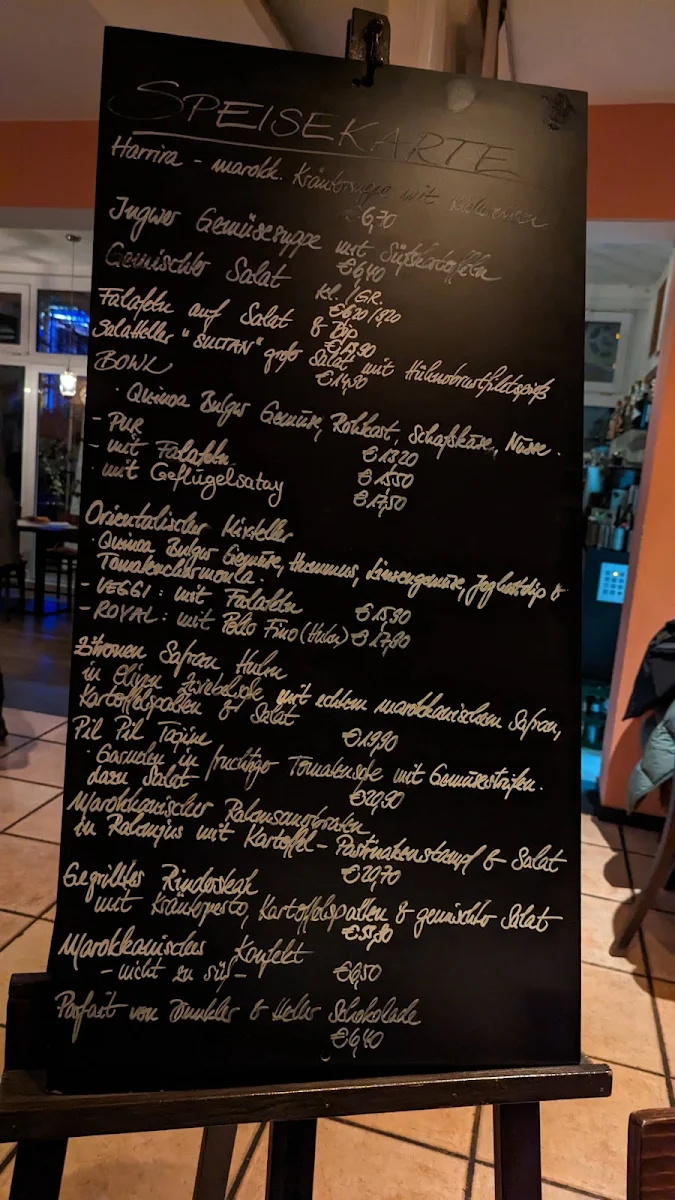 SPEISEKARTE
Harrira - marokk. Kräutersuppe mit
6,70
Ingwer Gemüsesuppe mit Süßkartoffeln
€ 6,40
Gemischter Salat kl. / GR.
€ 6,20 / 8,20
Falafeln auf Salat & Dip
€ 13,90
Salatteller "SULTAN" großer Salat mit Hühnerbrustfiletspieß
€ 14,90
BOWL
· Quinoa Bulgur Gemüse, Rohkost, Schafskäse, Nüsse.
- PUR € 13,20
- mit Falafeln € 15,50
- mit Geflügelsatay € 17,50
Orientalischer Mixteller
· Quinoa Bulgur Gemüse, Hummus, Linsengemüse, Joghurtdip &
Tomatencharmoula.
- VEGGI: mit Falafeln € 15,90
- ROYAL: mit Pollo Fino (Huhn) € 17,90
Zitronen Safran Huhn
in Zwiebelsoße mit echtem marokkanischem Safran,
Kartoffelspalten & Salat
€ 19,90
Pil Pil Tajine
· Garnelen in fruchtiger Tomatensoße mit Gemüsestreifen.
dazu Salat € 20,90
Marokkanischer
in mit Kartoffel - Pastinakenstampf & Salat
€ 20,70
Gegrilltes Rindersteak
mit Kräuterpesto, Kartoffelspalten & gemischter Salat
Marokkanisches Konfekt
- nicht zu süß - € 6,50
Parfait von Dunkler & Heller Schokolade
€ 6,40